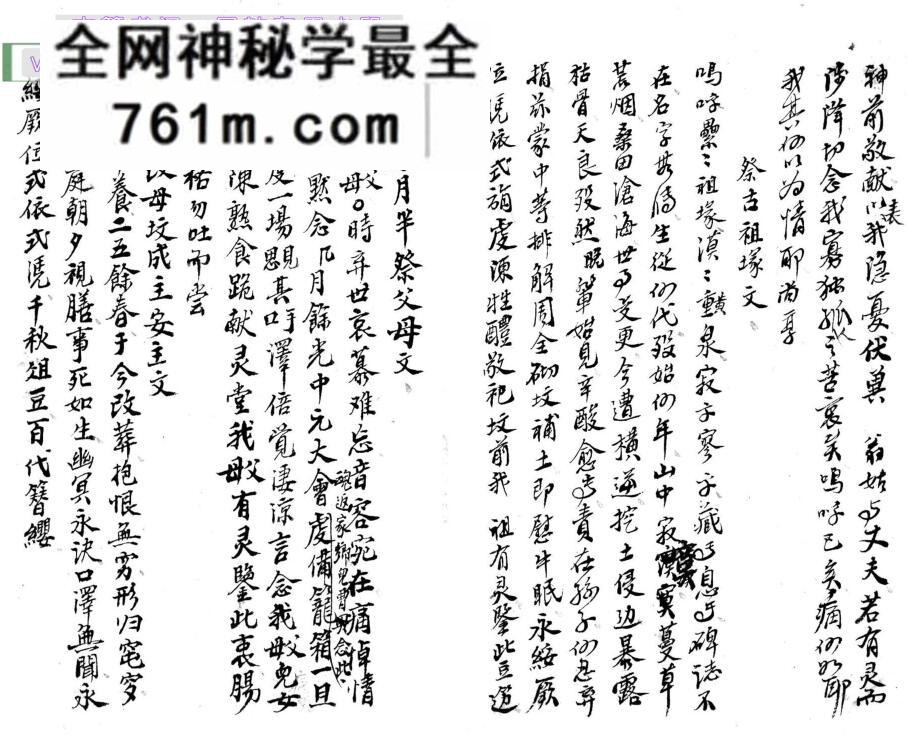 全网神秘学最全
761m.com
神前敬献以表我隐忧伏兾 翁姑与丈夫若有灵而
陟降切念我寡独孤人之苦哀矣呜呼已矣痛何如耶
我其何以为情耶尚享
祭古祖塚文
呜呼纍々祖塚漠々黄泉寂于寥于藏与息与碑誌不
在名字芳傳生従何代殁始何年山中寂寞蔓草
荒烟桑田滄海世与变更今遭横逆挖土侵边暴露
枯骨天良殁然眠箪始見辛酸愈与責在孫子何忍弃
捐茲蒙中等排解周全砌坟補土即慰牛眠永綏厥
位凭依式祷虔陳牲醴敬祀坟前我 祖有灵鑒此豆笾
月半祭父母文
父母〇時弃世哀慕难忘音容宛在痛悼情
默念几月餘光中元大會虔備籠箱一旦
魂返家鄉兒曹期念此
度一場覩其吁澤倍觉淒凉言念我父母兒女
陳熟食跪献灵堂我父母有灵鑒此衷腸
祐勿吐而尝
父母坟成主安主文
養二五餘春于今改葬抱恨無穷形归窀穸
庭朝夕視膳事死如生幽冥永決口澤無聞永
綏厥位式依式凭千秋俎豆百代簪纓